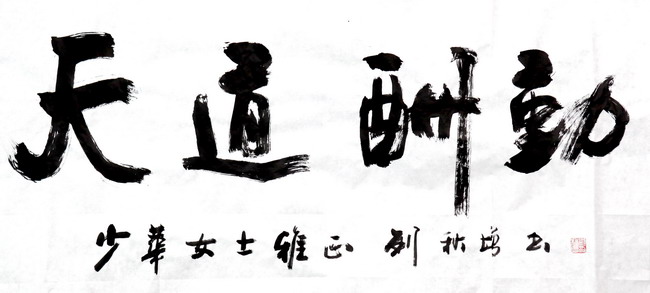 天道酬勤
少華女士雅正 劉秋增书